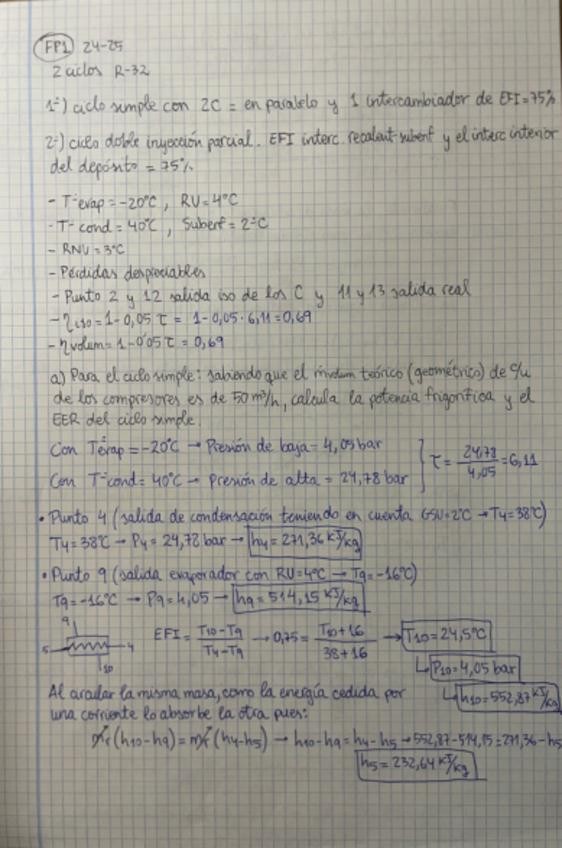 FP1 24-25
2 ciclos R-32
1º) ciclo simple con 2C = en paralelo y 1 intercambiador de EFI=75%
2º) ciclo doble inyección parcial. EFI interc. recalent-subenf y el interc interior
del depósito = 75%.
- Tª evap = -20°C, RU = 4°C
- Tª cond = 40°C, Subenf = 2°C
- RNU = 3°C
- Pérdidas despreciables
- Punto 2 y 12 salida iso de los C y 11 y 13 salida real
- ηiso = 1-0,05 τ = 1-0,05·6,11 = 0,69
- ηvolum = 1-0'05 τ = 0,69
a) Para el ciclo simple: sabiendo que el teórico (geométrico) de c/u
de los compresores es de 50 m³/h, calcula la potencia frigorífica y el
EER del ciclo simple.
Con Tªevap = -20°C → Presión de baja = 4,05 bar
Con Tªcond = 40°C → Presión de alta = 24,78 bar
τ = 24,78 / 4,05 = 6,11
• Punto 4 (salida de condensación teniendo en cuenta GSU=2°C → T4=38°C)
T4=38°C → P4 = 24,78 bar → h4 = 271,36 kJ/kg
• Punto 9 (salida evaporador con RU=4°C → T9=-16°C)
T9=-16°C → P9=4,05 → h9 = 514,15 kJ/kg
9
5
4
10
EFI = T10-T9 / T4-T9 → 0,75 = T10+16 / 38+16 → T10=24,5°C
P10=4,05 bar
h10=552,87 kJ/kg
Al circular la misma masa, como la energía cedida por
una corriente lo absorbe la otra pues:
(h10-h9) = (h4-h5) → h10-h9 = h4-h5 → 552,87-514,15 = 271,36-h5
h5 = 232,64 kJ/kg